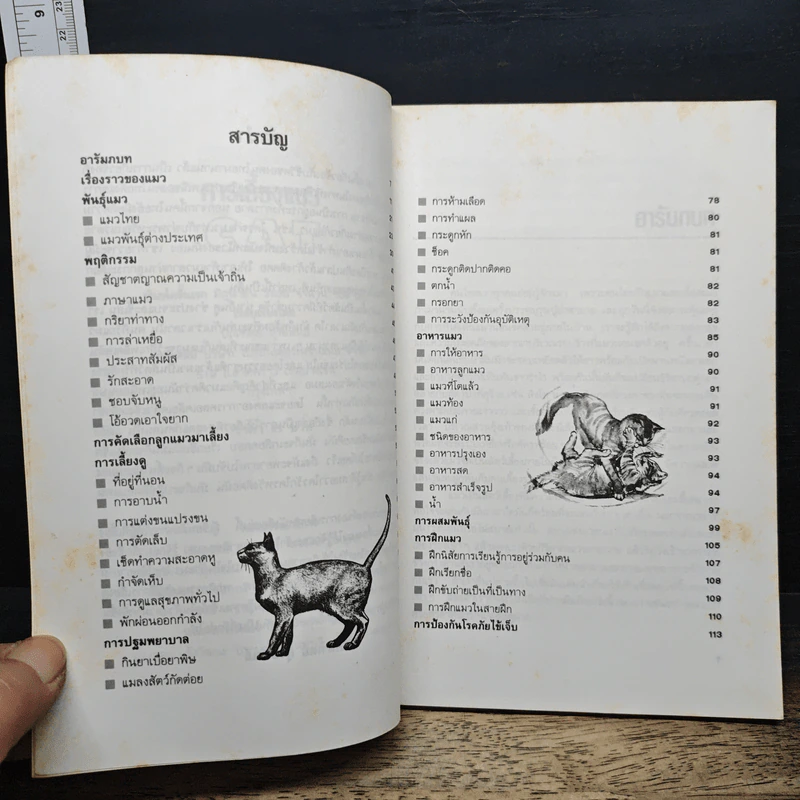 9
22
23
สารบัญ
อารัมภบท
เรื่องราวของแมว
พันธุ์แมว
แมวไทย
แมวพันธุ์ต่างประเทศ
พฤติกรรม
สัญชาตญาณความเป็นเจ้าถิ่น
ภาษาแมว
กริยาท่าทาง
การล่าเหยื่อ
ประสาทสัมผัส
รักสะอาด
ชอบจับหนู
โอ้อวดเอาใจยาก
การคัดเลือกลูกแมวมาเลี้ยง
การเลี้ยงดู
ที่อยู่ที่นอน
การอาบน้ำ
การแต่งขนแปรงขน
การตัดเล็บ
เช็ดทำความสะอาดหู
กำจัดเห็บ
การดูแลสุขภาพทั่วไป
พักผ่อนออกกำลัง
การปฐมพยาบาล
กินยาเบื่อยาพิษ
แมลงสัตว์กัดต่อย
การห้ามเลือด 78
การทำแผล 80
กระดูกหัก 81
ช็อค 81
กระดูกติดปากติดคอ 81
ตกน้ำ 82
กรอกยา 82
การระวังป้องกันอุบัติเหตุ 83
อาหารแมว 85
การให้อาหาร 90
อาหารลูกแมว 90
แมวที่โตแล้ว 91
แมวท้อง 91
แมวแก่ 92
ชนิดของอาหาร 93
อาหารปรุงเอง 93
อาหารสด 94
อาหารสำเร็จรูป 94
น้ำ 97
การผสมพันธุ์ 99
การฝึกแมว 105
ฝึกนิสัยการเรียนรู้การอยู่ร่วมกับคน 107
ฝึกเรียกชื่อ 108
ฝึกขับถ่ายเป็นที่เป็นทาง 109
การฝึกแมวในสายฝึก 110
การป้องกันโรคภัยไข้เจ็บ 113